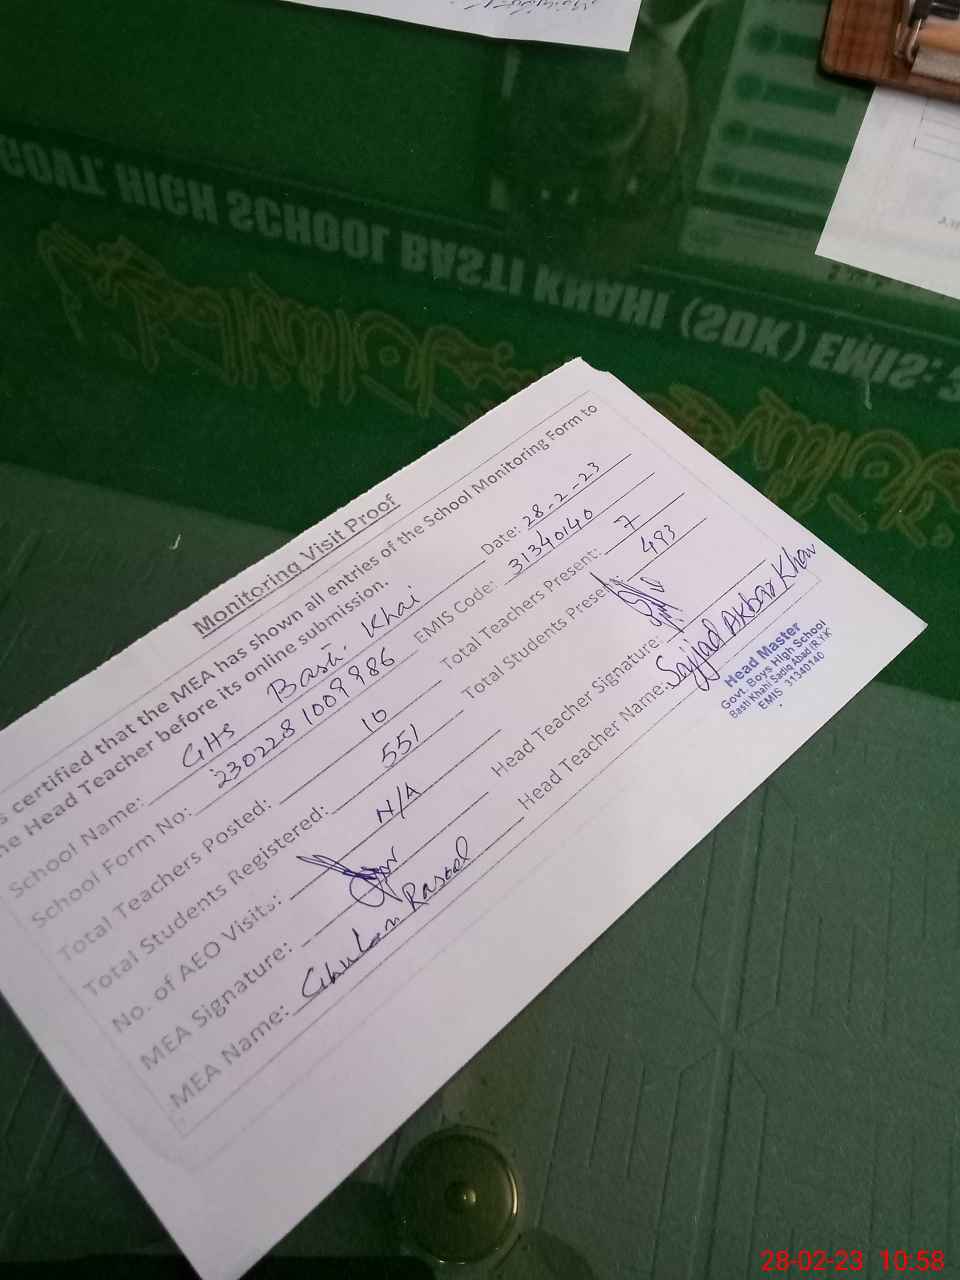 GOVT. HIGH SCHOOL BASTI KHAHI (SDK) EMIS:
Monitoring Visit Proof
certified that the MEA has shown all entries of the School Monitoring Form to
Head Teacher before its online submission.
School Name: GHS Basti Khai Date: 28-2-23
School Form No: 230228 1009886 EMIS Code: 31340140
Total Teachers Posted: 10 Total Teachers Present: 7
Total Students Registered: 551 Total Students Present: 493
No. of AEO Visits: N/A
MEA Signature: Head Teacher Signature:
MEA Name: Ghulam Rasool Head Teacher Name: Sajjad Akbar Khan
Head Master
Govt. Boys High School
Basti Khahi Sadiq Abad (R.Y.K)
EMIS 31340140
28-02-23 10:58